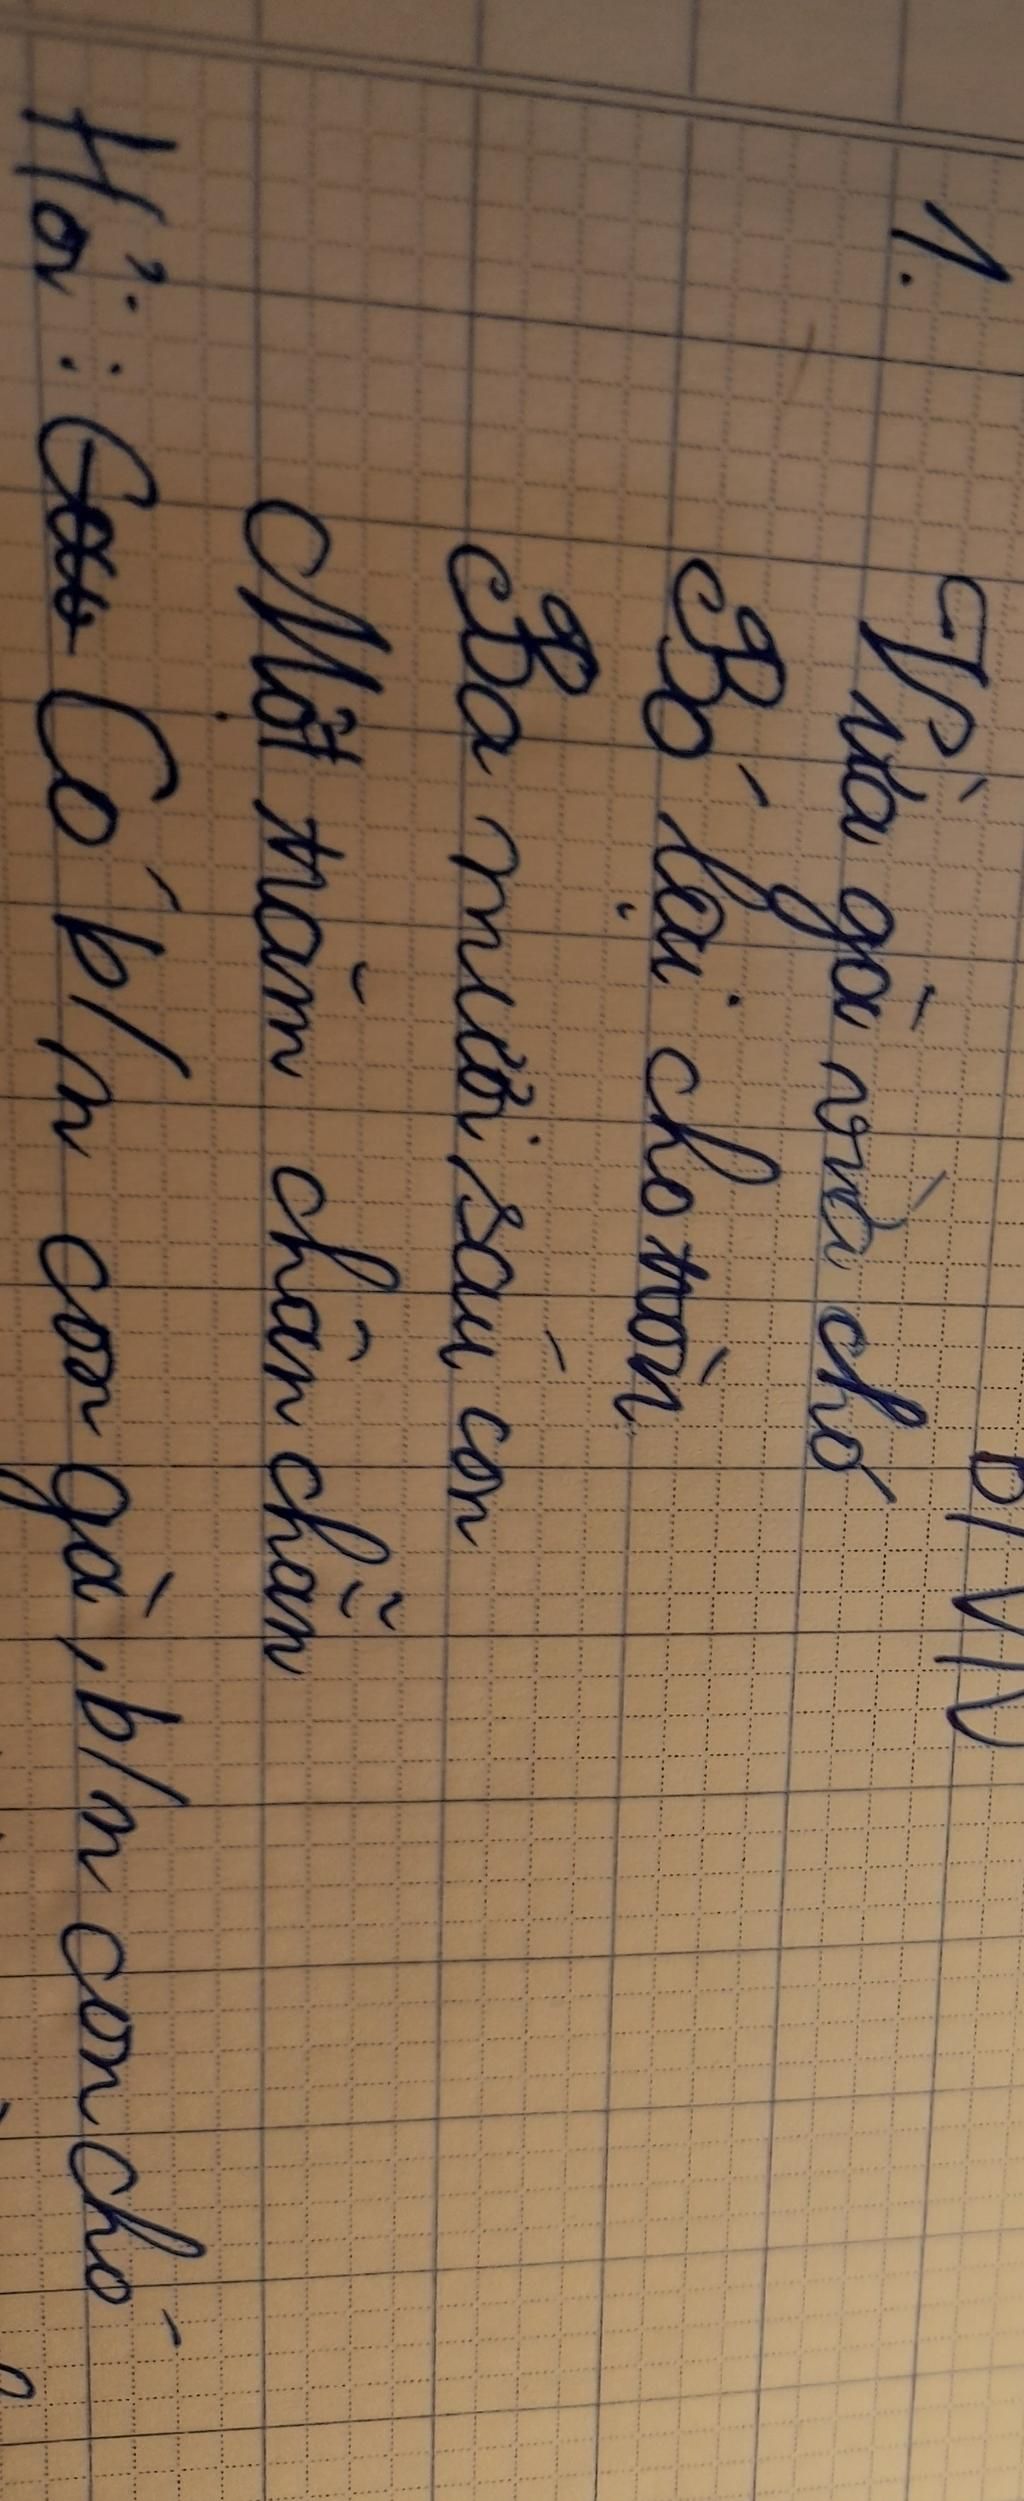 BTVN
1. Vừa gà vừa chó
Bó lại cho tròn
Ba mươi sáu con
Một trăm chân chẵn
Hỏi: Có b/n con gà, b/n con chó